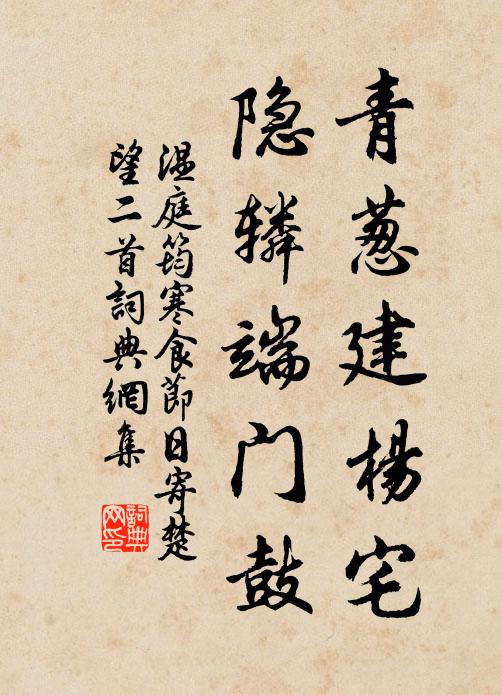 青葱建杨宅
隐辚端门鼓
温庭筠寒食節日寄楚
望二首詞典網集
詞典
网印